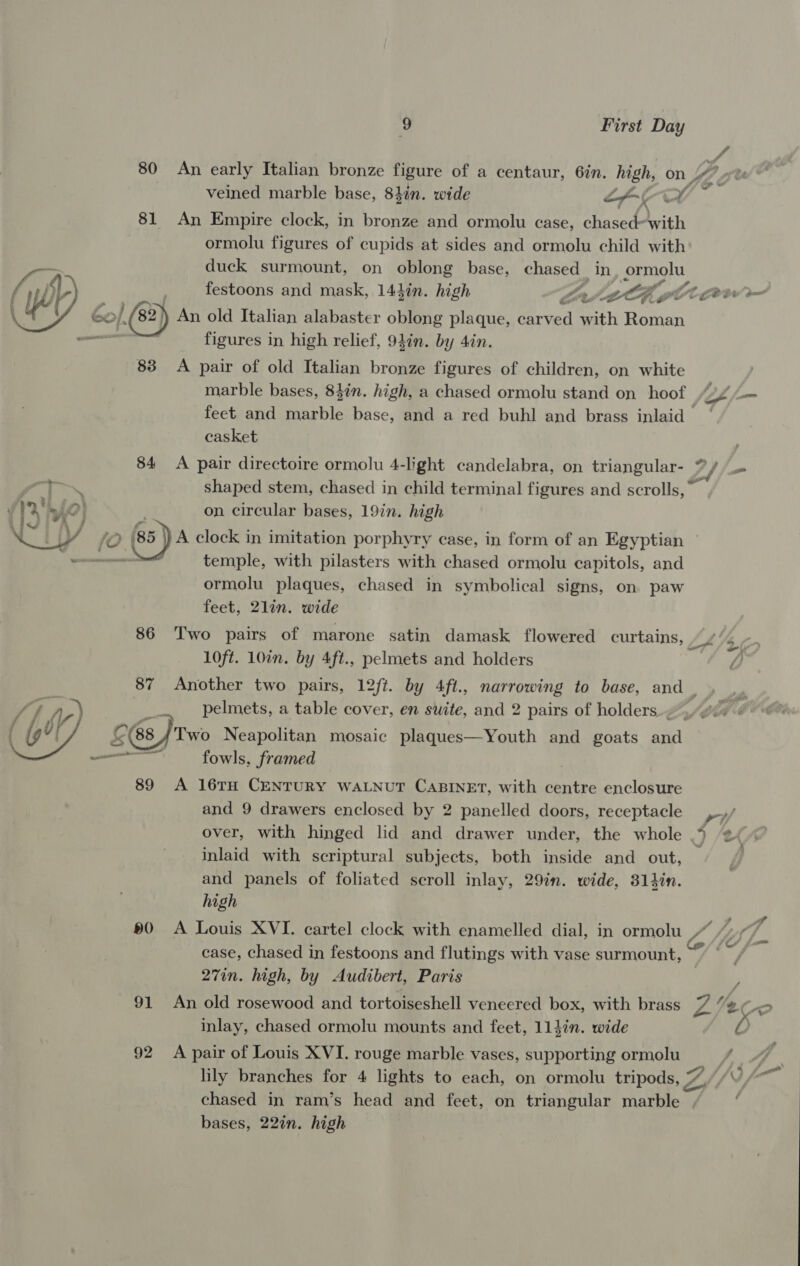 9 First Day
80 An early Italian bronze figure of a centaur, 6in. high, on
veined marble base, 8½in. wide
81 An Empire clock, in bronze and ormolu case, chased with
ormolu figures of cupids at sides and ormolu child with
duck surmount, on oblong base, chased in ormolu
festoons and mask, 14½in. high
60/. 82 An old Italian alabaster oblong plaque, carved with Roman
figures in high relief, 9½in. by 4in.
83 A pair of old Italian bronze figures of children, on white
marble bases, 8½in. high, a chased ormolu stand on hoof
feet and marble base, and a red buhl and brass inlaid
casket
84 A pair directoire ormolu 4-light candelabra, on triangular-
shaped stem, chased in child terminal figures and scrolls,
on circular bases, 19in. high
10 85 A clock in imitation porphyry case, in form of an Egyptian
temple, with pilasters with chased ormolu capitols, and
ormolu plaques, chased in symbolical signs, on paw
feet, 21in. wide
86 Two pairs of marone satin damask flowered curtains,
10ft. 10in. by 4ft., pelmets and holders
87 Another two pairs, 12ft. by 4ft., narrowing to base, and
pelmets, a table cover, en suite, and 2 pairs of holders
88 Two Neapolitan mosaic plaques—Youth and goats and
fowls, framed
89 A 16TH CENTURY WALNUT CABINET, with centre enclosure
and 9 drawers enclosed by 2 panelled doors, receptacle
over, with hinged lid and drawer under, the whole
inlaid with scriptural subjects, both inside and out,
and panels of foliated scroll inlay, 29in. wide, 31½in.
high
90 A Louis XVI. cartel clock with enamelled dial, in ormolu
case, chased in festoons and flutings with vase surmount,
27in. high, by Audibert, Paris
91 An old rosewood and tortoiseshell veneered box, with brass
inlay, chased ormolu mounts and feet, 11½in. wide
92 A pair of Louis XVI. rouge marble vases, supporting ormolu
lily branches for 4 lights to each, on ormolu tripods,
chased in ram's head and feet, on triangular marble
bases, 22in. high